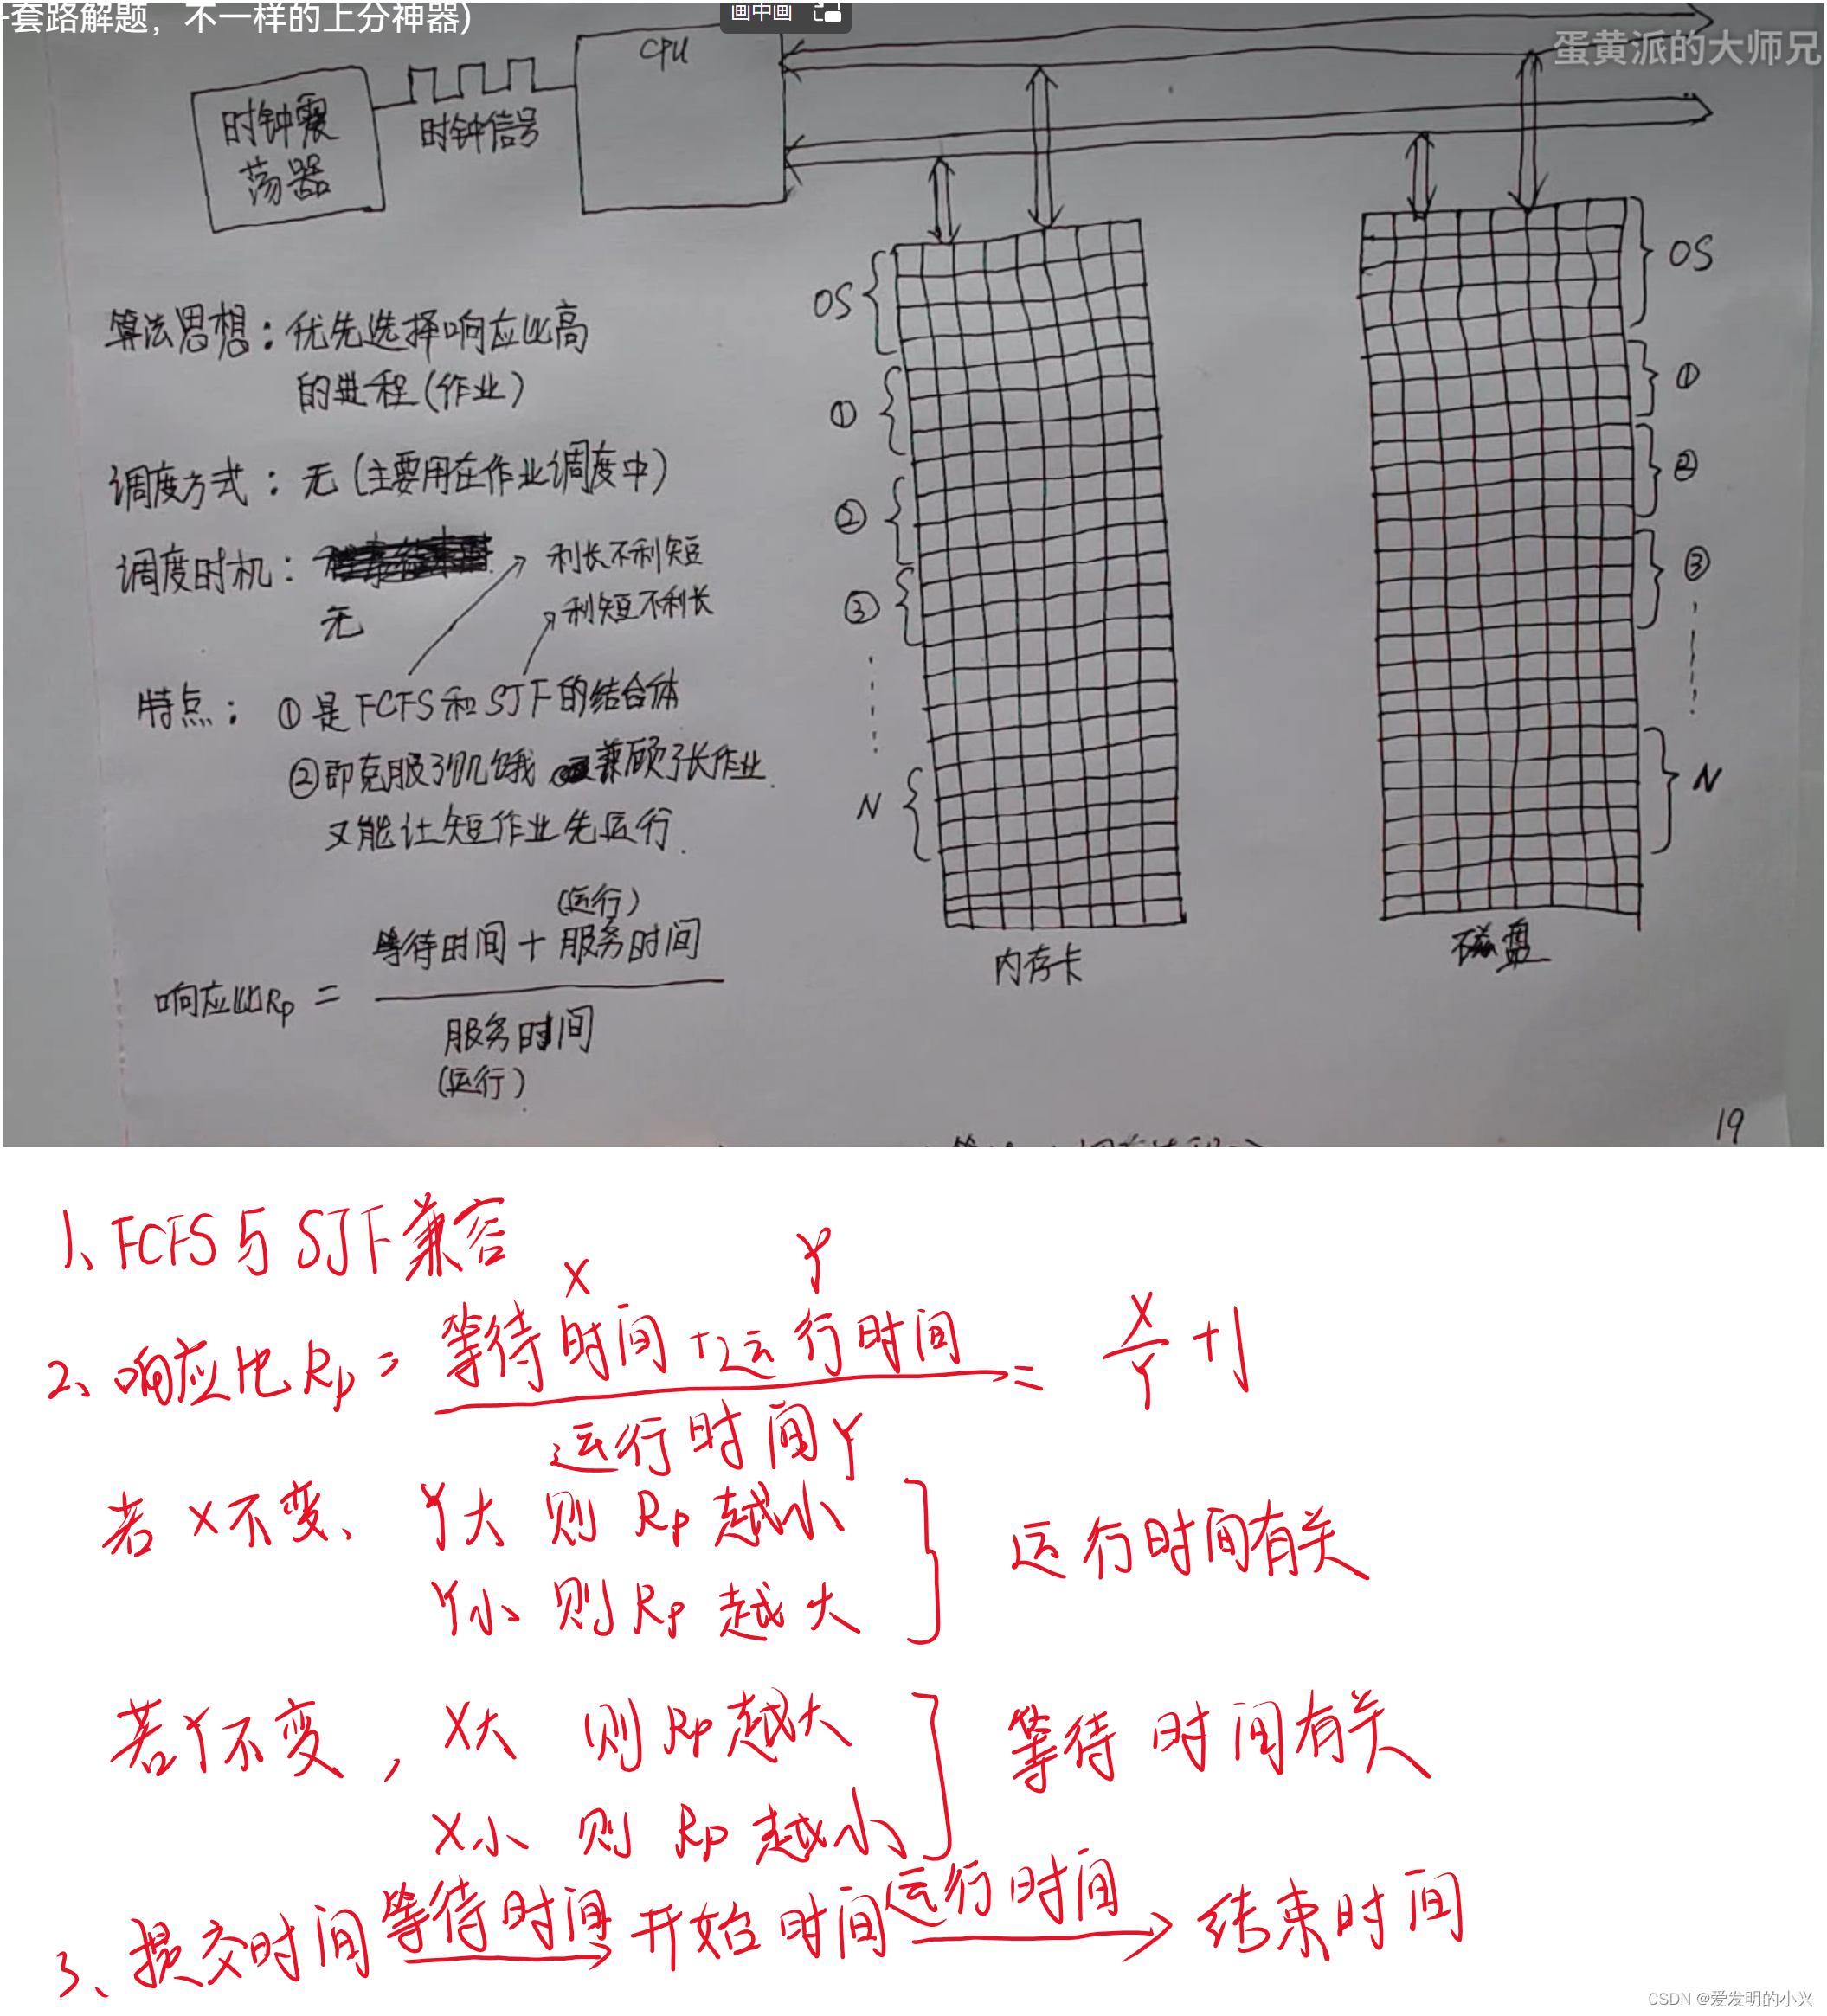 套路解题，不一样的上分神器)
画中画
蛋黄派的大师兄
CPU
时钟震
荡器
时钟信号
算法思想：优先选择响应比高
的进程(作业)
调度方式：无(主要用在作业调度中)
调度时机：
无
利长不利短
利短不利长
特点：①是FCFS和SJF的结合体
②即克服了饥饿 兼顾了长作业
又能让短作业先运行.
(运行)
等待时间+服务时间
响应比Rp =
服务时间
(运行)
OS
①
②
③
N
内存卡
OS
①
②
③
N
磁盘
19
1、FCFS与SJF兼容
X Y
2、响应比Rp = 等待时间+运行时间 = X/Y +1
运行时间Y
若X不变、Y大 则 Rp越小
Y小 则 Rp 越大
运行时间有关
若Y不变，X大 则Rp越大
X小 则 Rp 越小
等待时间有关
3、提交时间 等待时间 开始时间 运行时间 结束时间
CSDN @爱发明的小兴